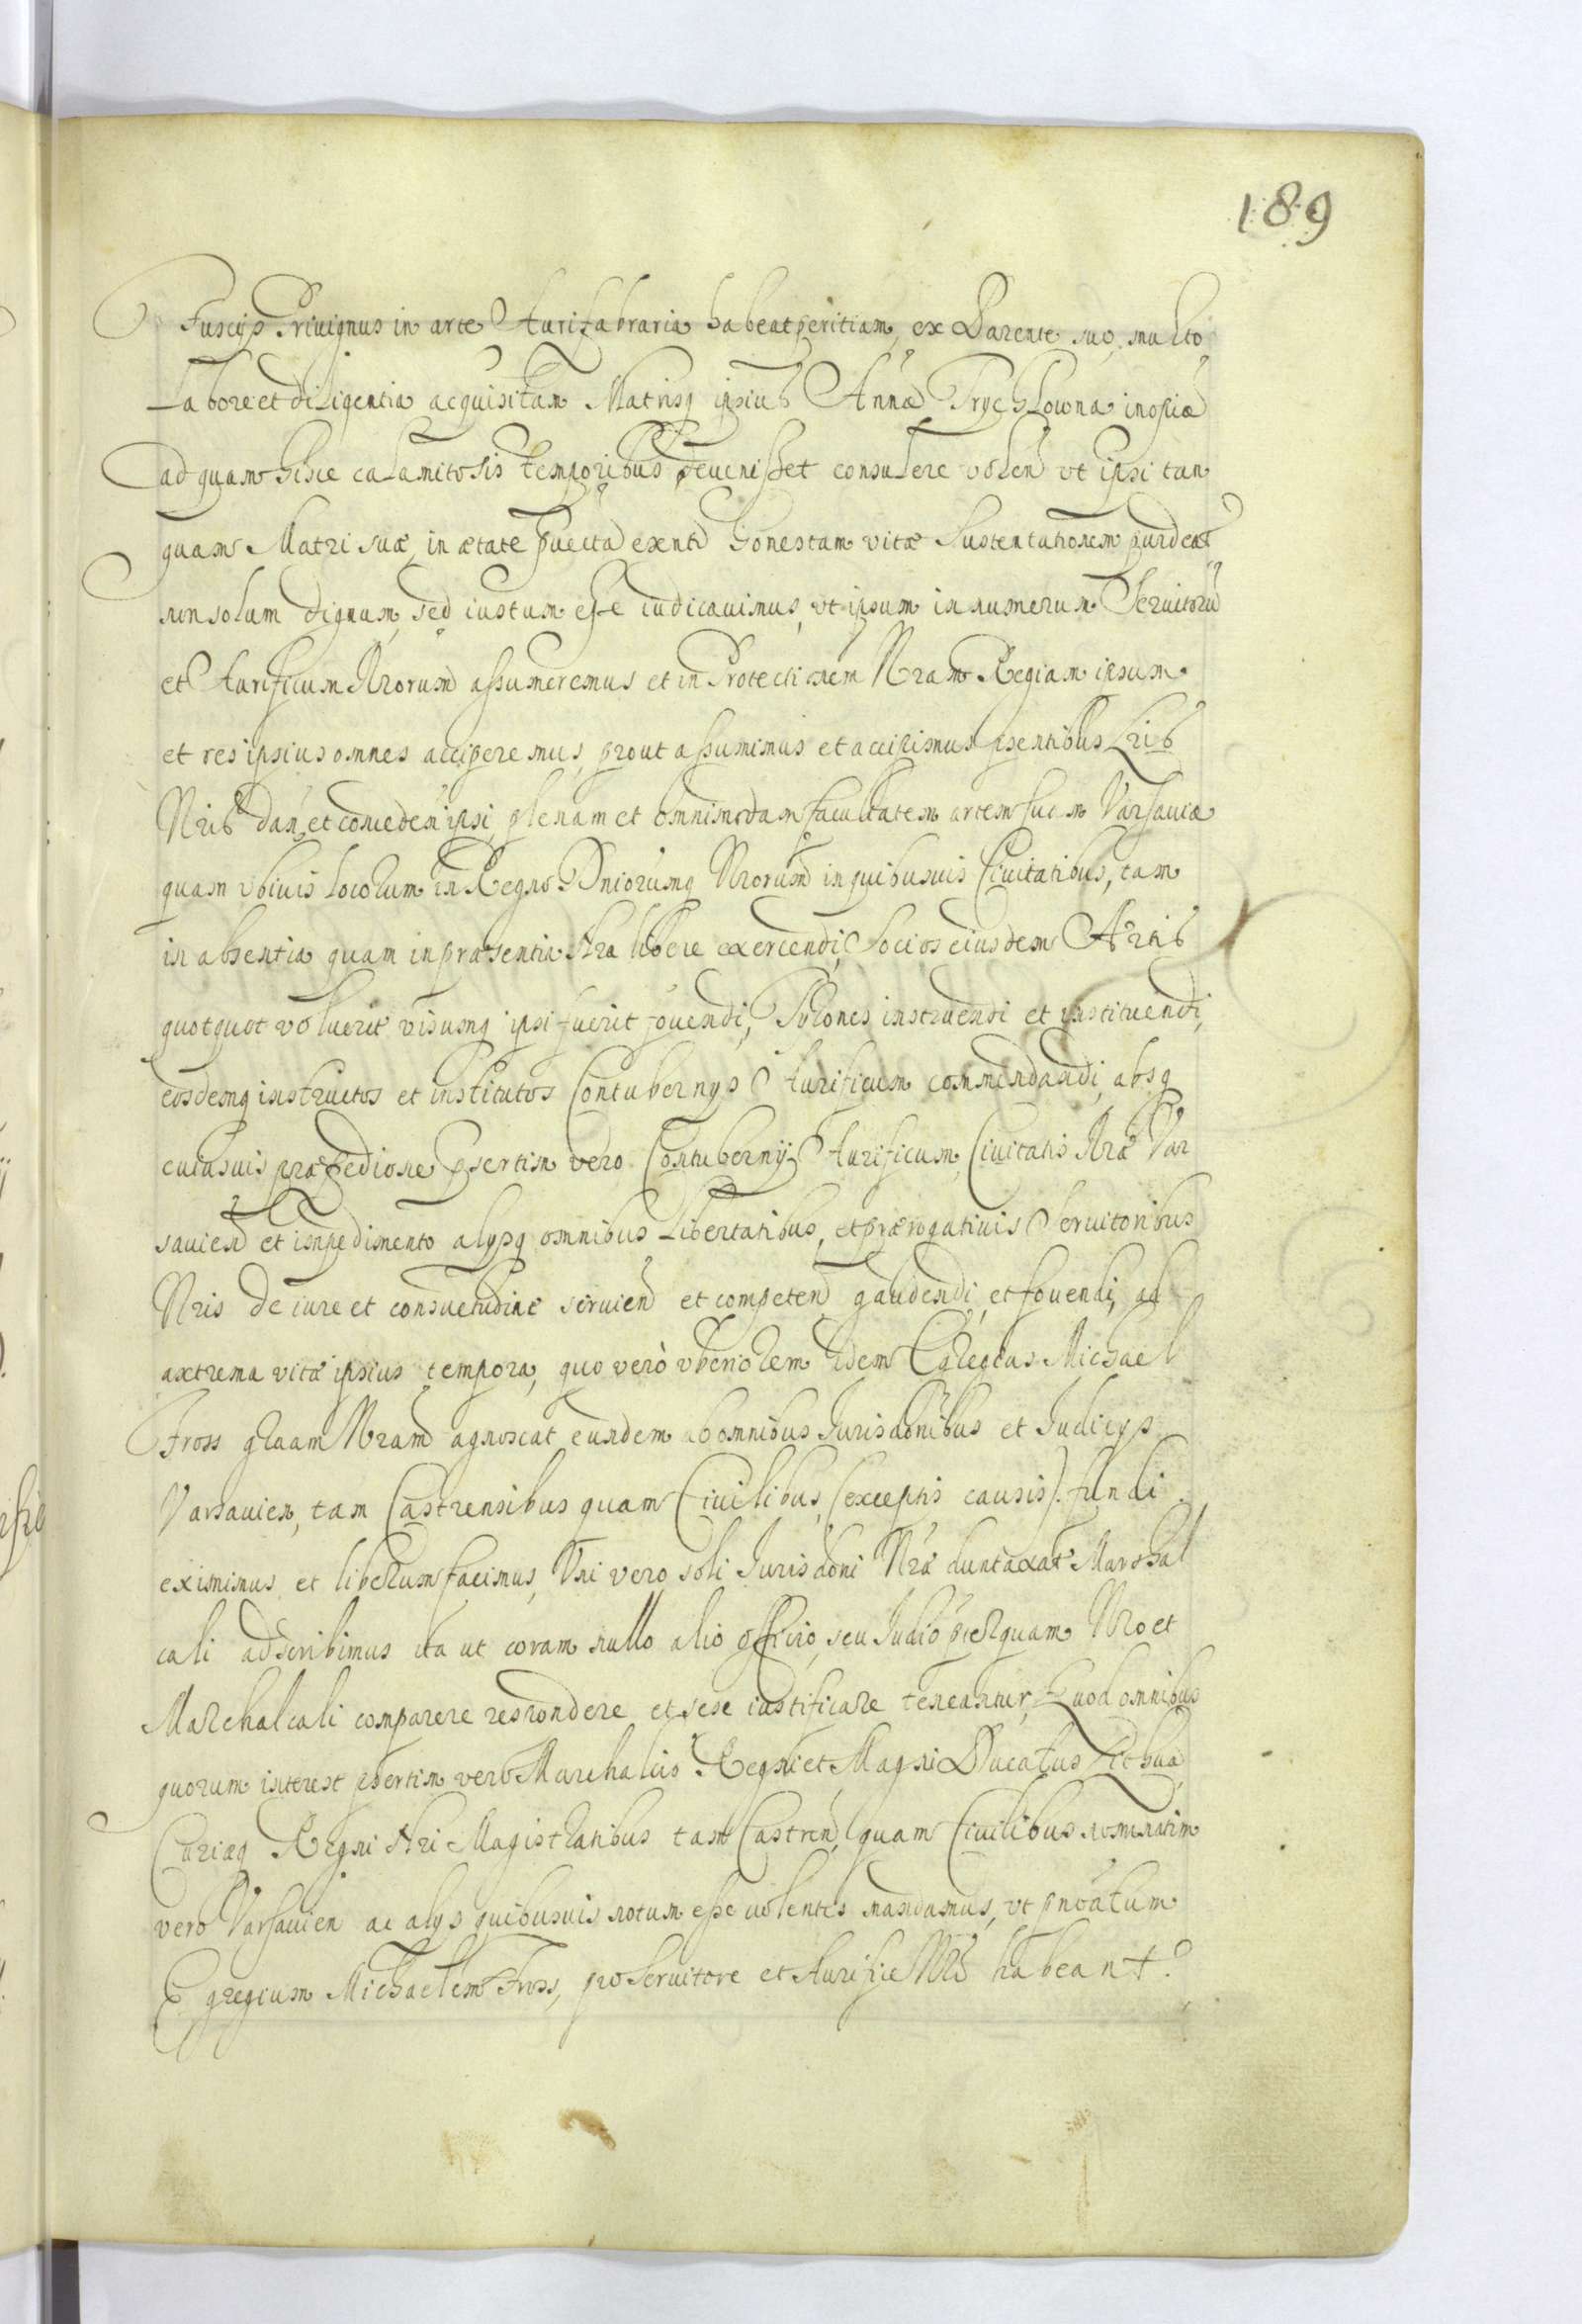 189
Fuscijs Priuignus in arte Aurifabraria habeat peritiam, ex Parente suo, multo
Labore et diligentia acquisitam Matrisq ipsius Annæ Trychlowna inopiæ
ad quam hisce calamitosis temporibus deuenisset consulere volen vt ipsi tan
quam Matri suæ, in ætate puecta exenti honestam vitæ Sustentationem
non solum dignum, sed iustum esse iudicauimus, vt ipsum in numerum Seruitorū
et Aurificum Nrorum assumeremus et in Protectionem Nram Regiam ipsum
et res ipsius omnes acciperemus, prout assumimus et accipimus psentibus Lris
Nris dan et conceden ipsi plenam et omnimodam facultatem artem suam Varsauiæ
quam vbiuis locorum in Regno Dniorumq Nrorum in quibusuis Ciuitatibus, tam
in absentia quam in præsentia Nra libere exercendi, Socios eiusdem Artis
quotquot voluerit visumq ipsi fuerit fouendi, Tyrones instruendi et instituendi,
eosdemq instructos et institutos Contubernijs Aurificum commendandi, absq
cuiusuis præpedione psertim vero Contubernij Aurificum Ciuitatis Nræ Var
sauien et impedimento alijsq omnibus Libertatibus, et prærogatiuis Seruitoribus
Nris de iure et consuetudine seruien et competen gaudendi, et fouendi, ad
axtrema vitæ ipsius tempora, quo verò vberiorem idem Egregius Michael
Fross graam Nram agnoscat eundem ab omnibus Jurisdonibus et Judicijs
Varsauien, tam Castrensibus quam Ciuilibus, (exceptis causis). fundi
eximimus et liberum facimus, Vni vero soli Jurisdoni Nræ duntaxat Marshal
cali adscribimus ita ut coram nullo alio officio, seu Judio præterquam Nro et
Marchalcali comparere respondere et sese iustificare teneantur, Quod omnibus
quorum interest psertim vero Marchalcis Regni et Magni Ducatus Lithuā
Curiæq Regni Nri Magistratibus tam Castren, quam Ciuilibus nominatim
vero Varsauien ac alijs quibusuis notum esse uolentes mandamus, vt pnoatum
Egregium Michaelem Fross, pro Seruitore et Aurifice Nro habeant.